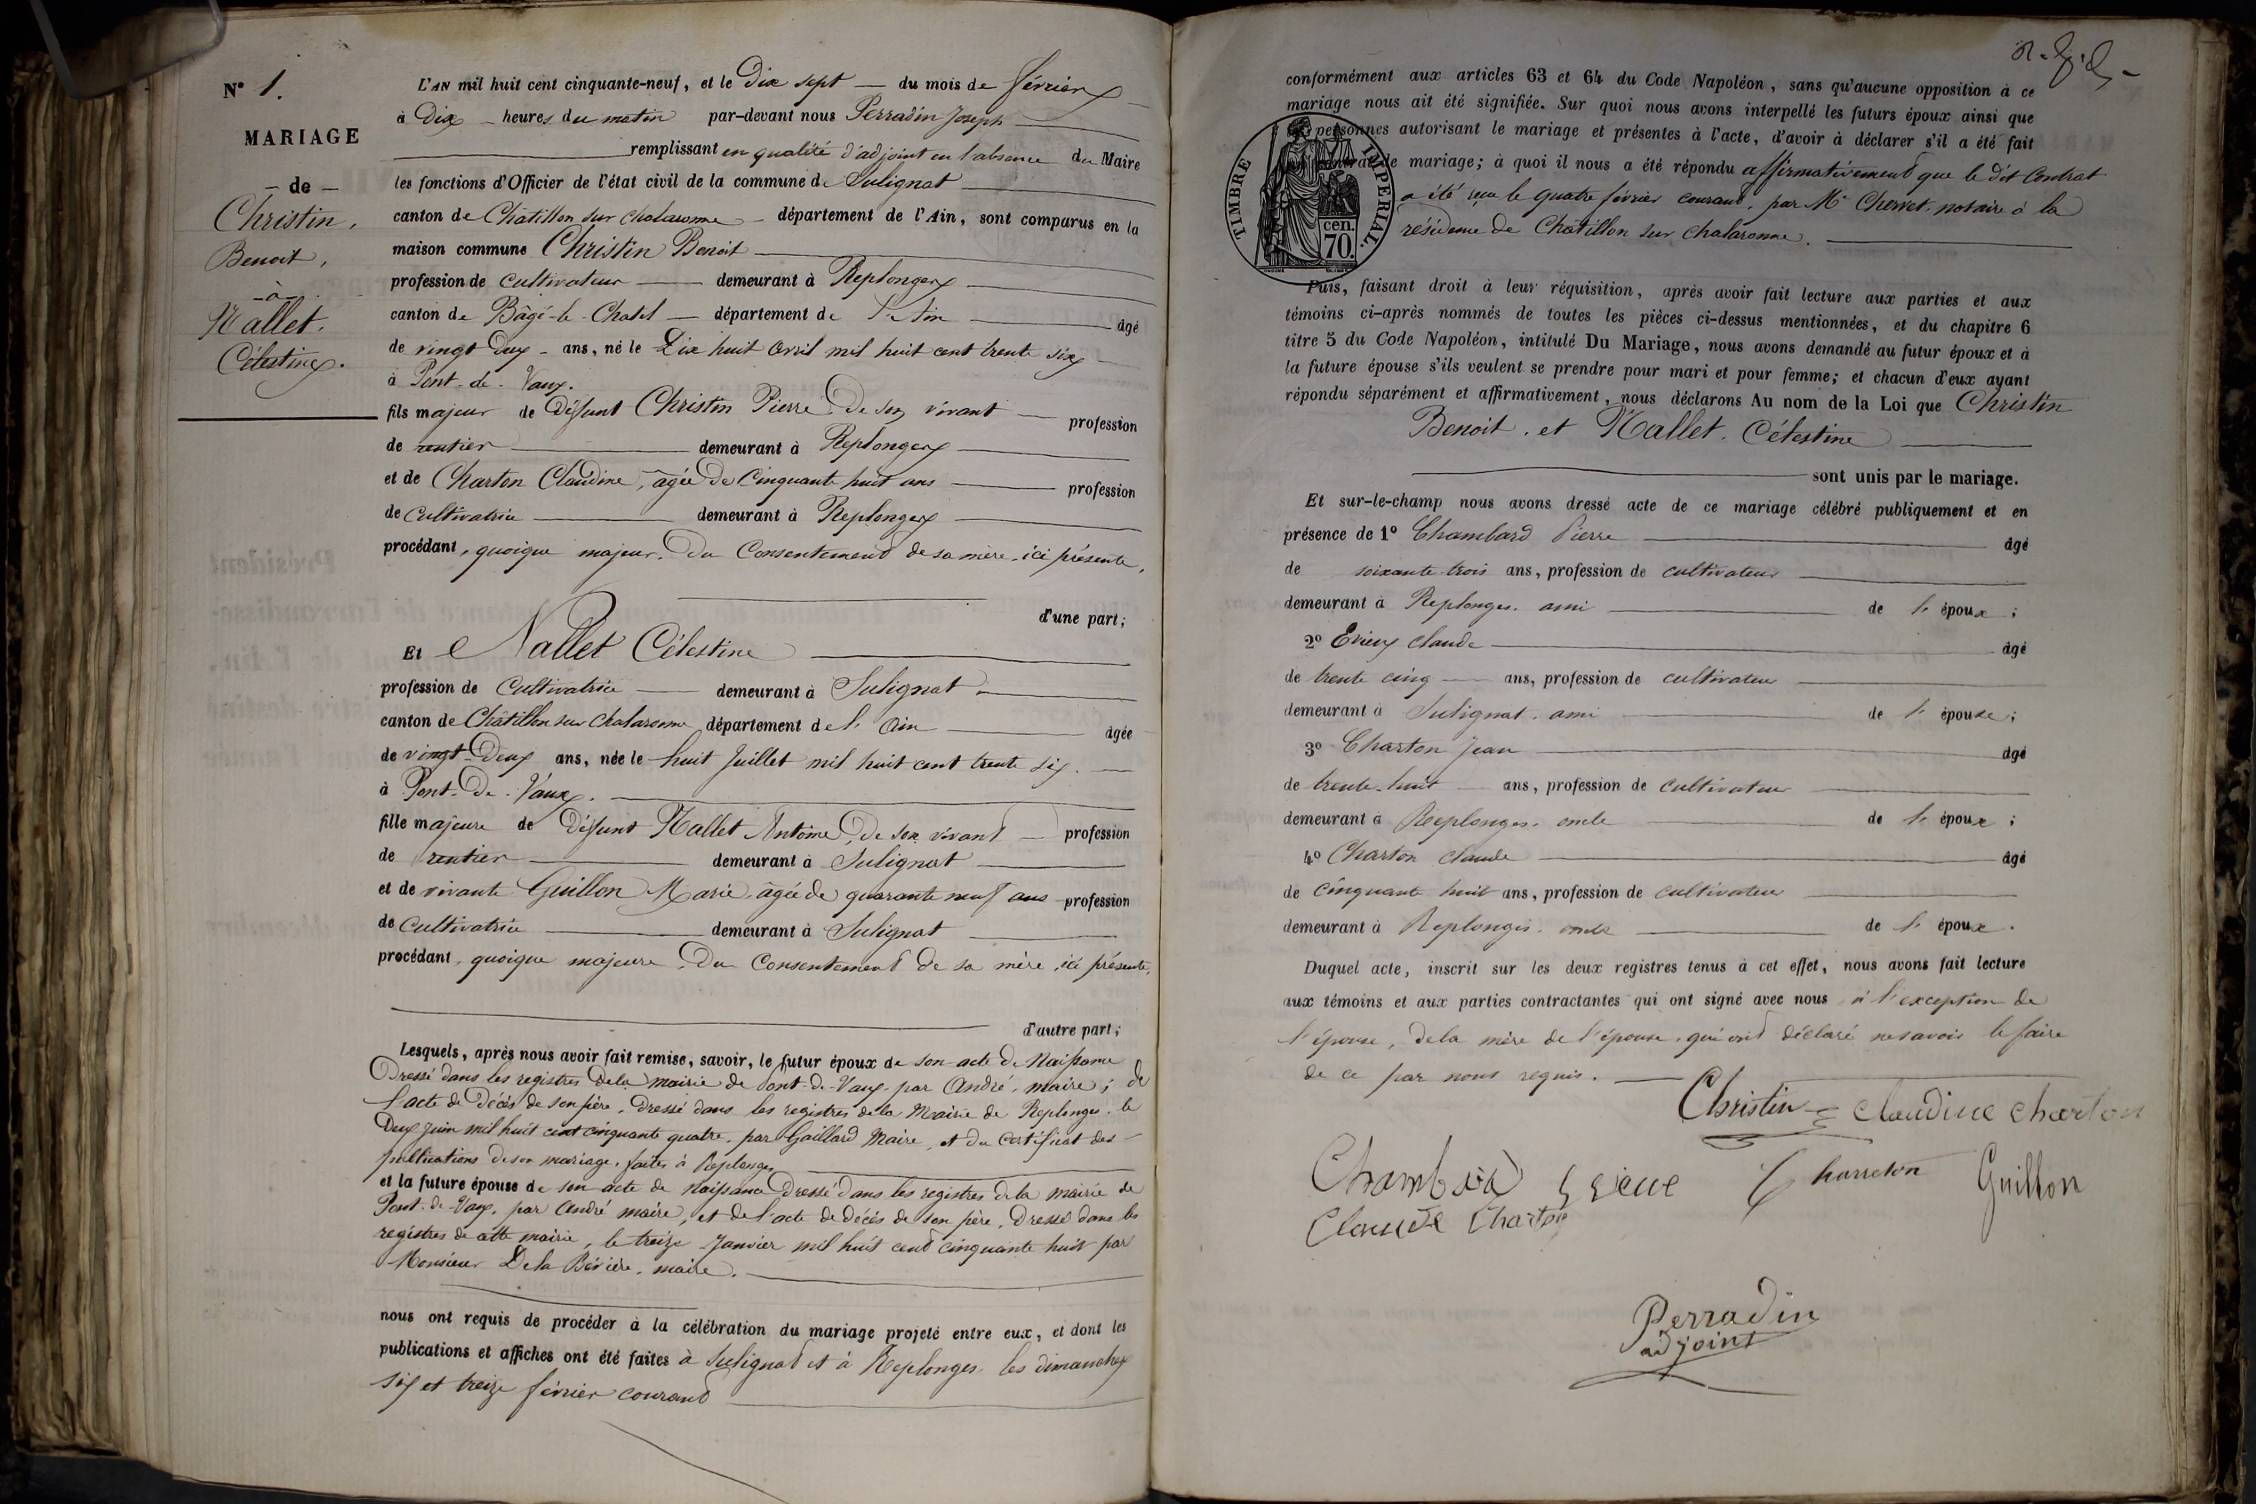 N° 1.
MARIAGE
— de —
Christin,
Benoit,
— à —
Nallet,
Célestine.
L'AN mil huit cent cinquante-neuf, et le Dix sept — du mois de février
à Dix — heures du matin par-devant nous Perradin Joseph
remplissant en qualité d'adjoint en l'absence du Maire
les fonctions d'Officier de l'état civil de la commune de Sulignat
canton de Châtillon sur chalaronne — département de l'Ain, sont comparus en la
maison commune Christin Benoit
profession de cultivateur — demeurant à Replonges
canton de Bâgé-le-Chatel — département de l'Ain — âgé
de vingt deux — ans, né le Dix huit Avril mil huit cent trente six
à Pont-de-Vaux.
fils majeur de Défunt Christin Pierre, De son vivant — profession
de rentier — demeurant à Replonges
et de Charton Claudine, âgée de Cinquante huit ans — profession
de Cultivatrice — demeurant à Replonges
procédant, quoique majeur, Du Consentement de sa mère, ici présente,
d'une part;
Et Nallet Célestine
profession de Cultivatrice — demeurant à Sulignat
canton de Châtillon sur Chalaronne département de l'Ain — âgée
de vingt-Deux ans, née le huit Juillet mil huit cent trente six. —
à Pont-De-Vaux.
fille majeure de Défunt Nallet Antoine, De son vivant — profession
de rentier — demeurant à Sulignat
et de vivante Guillon Marie, âgée de quarante neuf ans profession
de Cultivatrice — demeurant à Sulignat
procédant, quoique majeure, Du Consentement de sa mère, ici présente,
d'autre part;
Lesquels, après nous avoir fait remise, savoir, le futur époux de son acte de Naissance
Dressé dans les registres de la mairie de Pont-de-Vaux, par André, maire; de
l'acte de Décès de son père, Dressé dans les registres de la Mairie de Replonges, le
Deux Juin mil huit cent cinquante quatre, par Gaillard Maire, et du Certificat des
publications de son mariage, faites à Replonges
et la future épouse de son acte de Naissance Dressé dans les registres de la mairie de
Pont-de-Vaux, par André maire, et de l'acte de décès de son père, Dressé dans les
registres de cette mairie, le treize Janvier mil huit cent cinquante huit par
Monsieur De la Bévière, maire.
nous ont requis de procéder à la célébration du mariage projeté entre eux, et dont les
publications et affiches ont été faites à Sulignat et à Replonges, les dimanches
six et treize février courant
conformément aux articles 63 et 64 du Code Napoléon, sans qu'aucune opposition à ce
mariage nous ait été signifiée. Sur quoi nous avons interpellé les futurs époux ainsi que
personnes autorisant le mariage et présentes à l'acte, d'avoir à déclarer s'il a été fait
de mariage; à quoi il nous a été répondu affirmativement que le dit Contrat
a été reçu le quatre février courant, par Me Chervet, notaire à la
résidence de Châtillon sur Chalaronne.
TIMBRE IMPERIAL.
cen.
70.
Puis, faisant droit à leur réquisition, après avoir fait lecture aux parties et aux
témoins ci-après nommés de toutes les pièces ci-dessus mentionnées, et du chapitre 6
titre 5 du Code Napoléon, intitulé Du Mariage, nous avons demandé au futur époux et à
la future épouse s'ils veulent se prendre pour mari et pour femme; et chacun d'eux ayant
répondu séparément et affirmativement, nous déclarons Au nom de la Loi que Christin
Benoit, et Nallet, Célestine
sont unis par le mariage.
Et sur-le-champ nous avons dressé acte de ce mariage célébré publiquement et en
présence de 1° Chambard Pierre — âgé
de soixante trois ans, profession de cultivateur
demeurant à Replonges, ami — de l' époux;
2° Evieux Claude — âgé
de trente cinq — ans, profession de cultivateur
demeurant à Sulignat, ami — de l' épouse;
3° Charton Jean — âgé
de trente-huit — ans, profession de cultivateur
demeurant à Replonges, oncle — de l' époux;
4° Charton Claude — âgé
de cinquante huit ans, profession de cultivateur
demeurant à Replonges, oncle — de l' époux.
Duquel acte, inscrit sur les deux registres tenus à cet effet, nous avons fait lecture
aux témoins et aux parties contractantes qui ont signé avec nous à l'exception de
l'épouse, de la mère de l'épouse, qui ont déclaré ne savoir le faire
de ce par nous requis.
Christin Claudine Charton
Chambard Evieue Charreton Guillon
Claude Charton
Perradin
adjoint